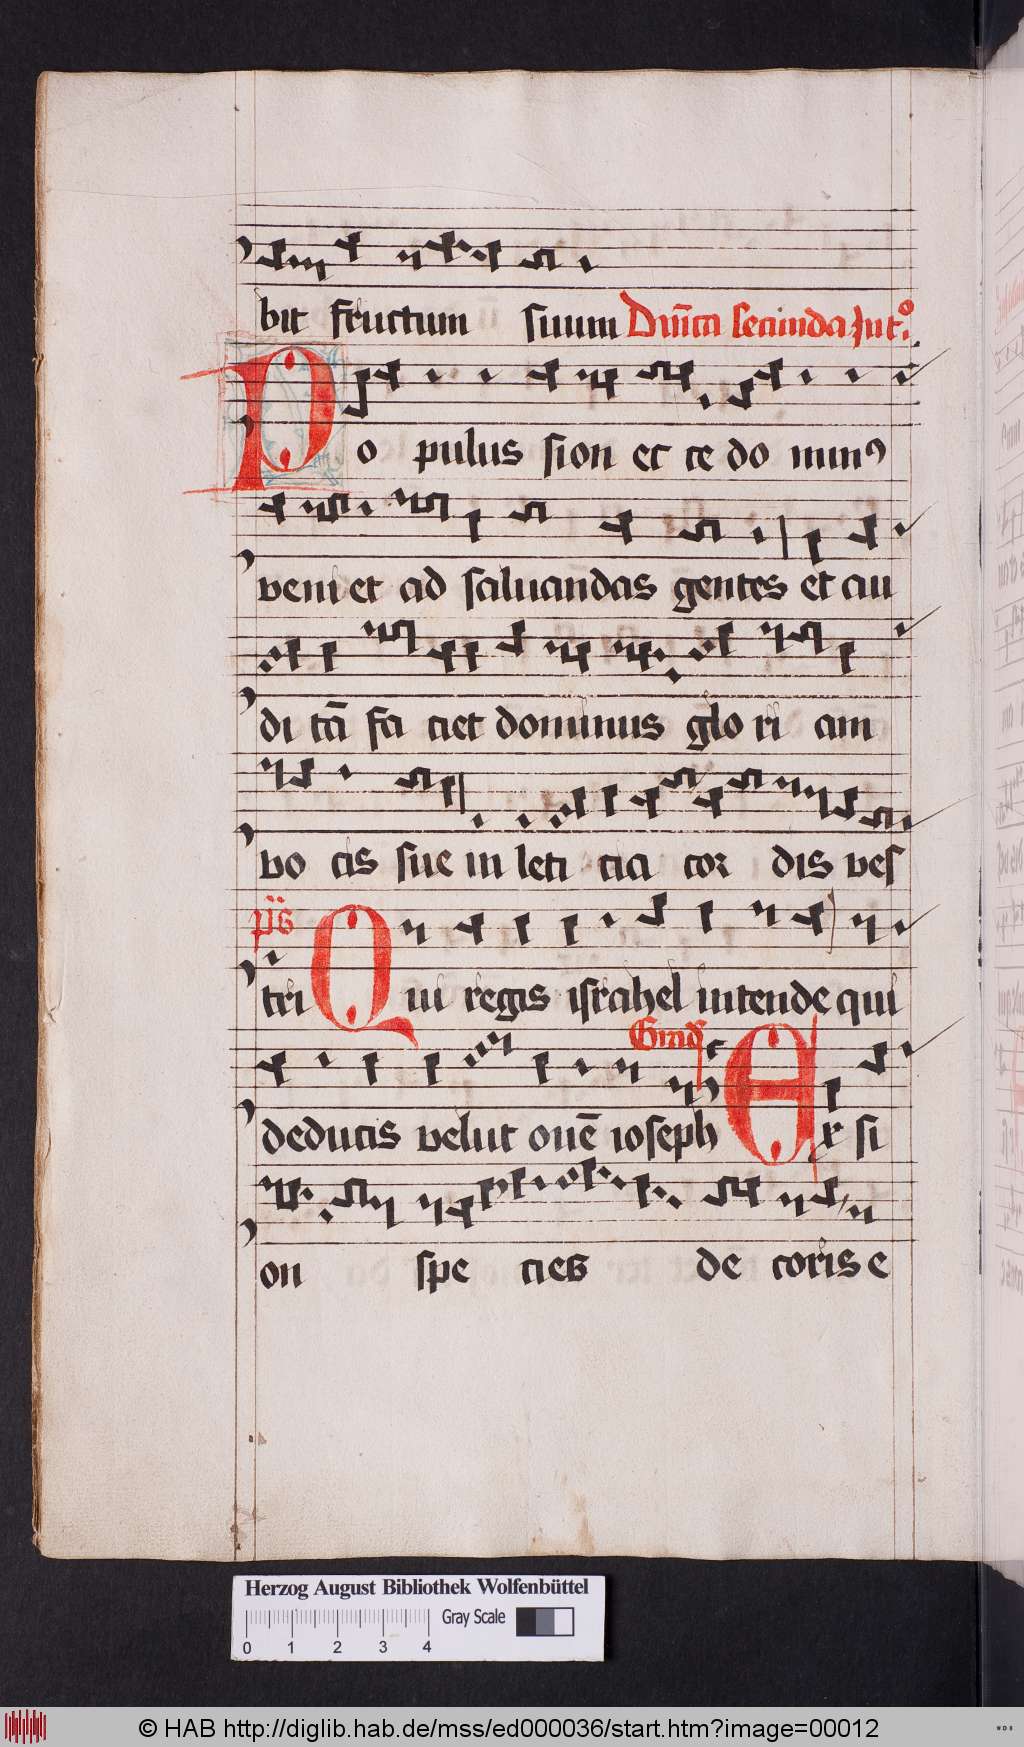 bit fructum suum Dnīca secunda Int°.
Po pulus sion et te do minꝰ
veni et ad saluandas gentes et au
di tā fa ciet dominus glo ri am
vo cis sue in leti cia cor dis ves
p̄s tri Qui regis israhel intende qui
Grad
deducis velut ouē ioseph Ex si
on spe cies de coris e
Herzog August Bibliothek Wolfenbüttel
Gray Scale
0 1 2 3 4
© HAB http://diglib.hab.de/mss/ed000036/start.htm?image=00012